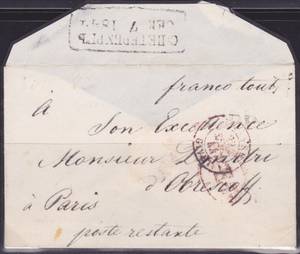 С.ПЕТЕРБУРГЪ
franco tout
à
Son Excellence
Monsieur Dmitri
d'Obrescoff
à Paris
poste restante